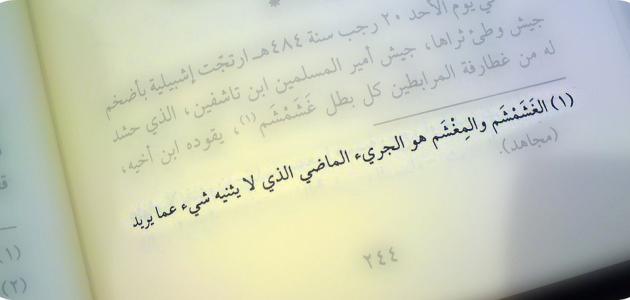 في يوم الأحد ٢٠ رجب سنة ٤٨٤هـ ارتجّت إشبيلية بأضخم
جيش وطئ ثراها، جيش أمير المسلمين ابن تاشفين، الذي حشد
له من غطارفة المرابطين كل بطل غَشَمْشَم (١)، يقوده ابن أخيه،
(١) الغَشَمْشَم والمِغْشَم هو الجريء الماضي الذي لا يثنيه شيء عما يريد
(مجاهد).
٢٤٤
(١)
(٢)